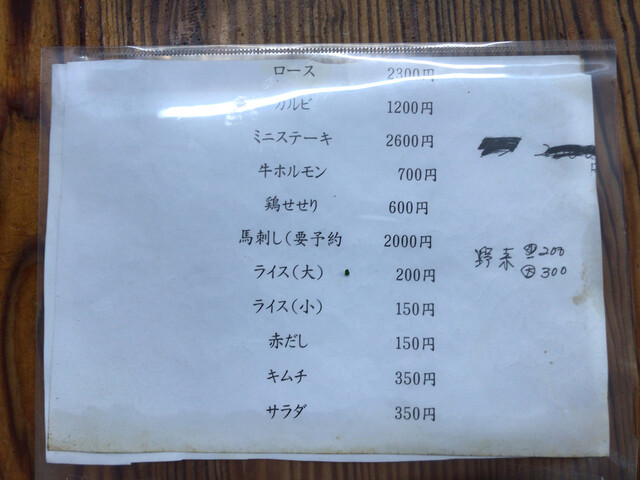 ロース 2300円
カルビ 1200円
ミニステーキ 2600円
牛ホルモン 700円
鶏せせり 600円
馬刺し(要予約 2000円
ライス(大) 200円
野菜 200
大 300
ライス(小) 150円
赤だし 150円
キムチ 350円
サラダ 350円